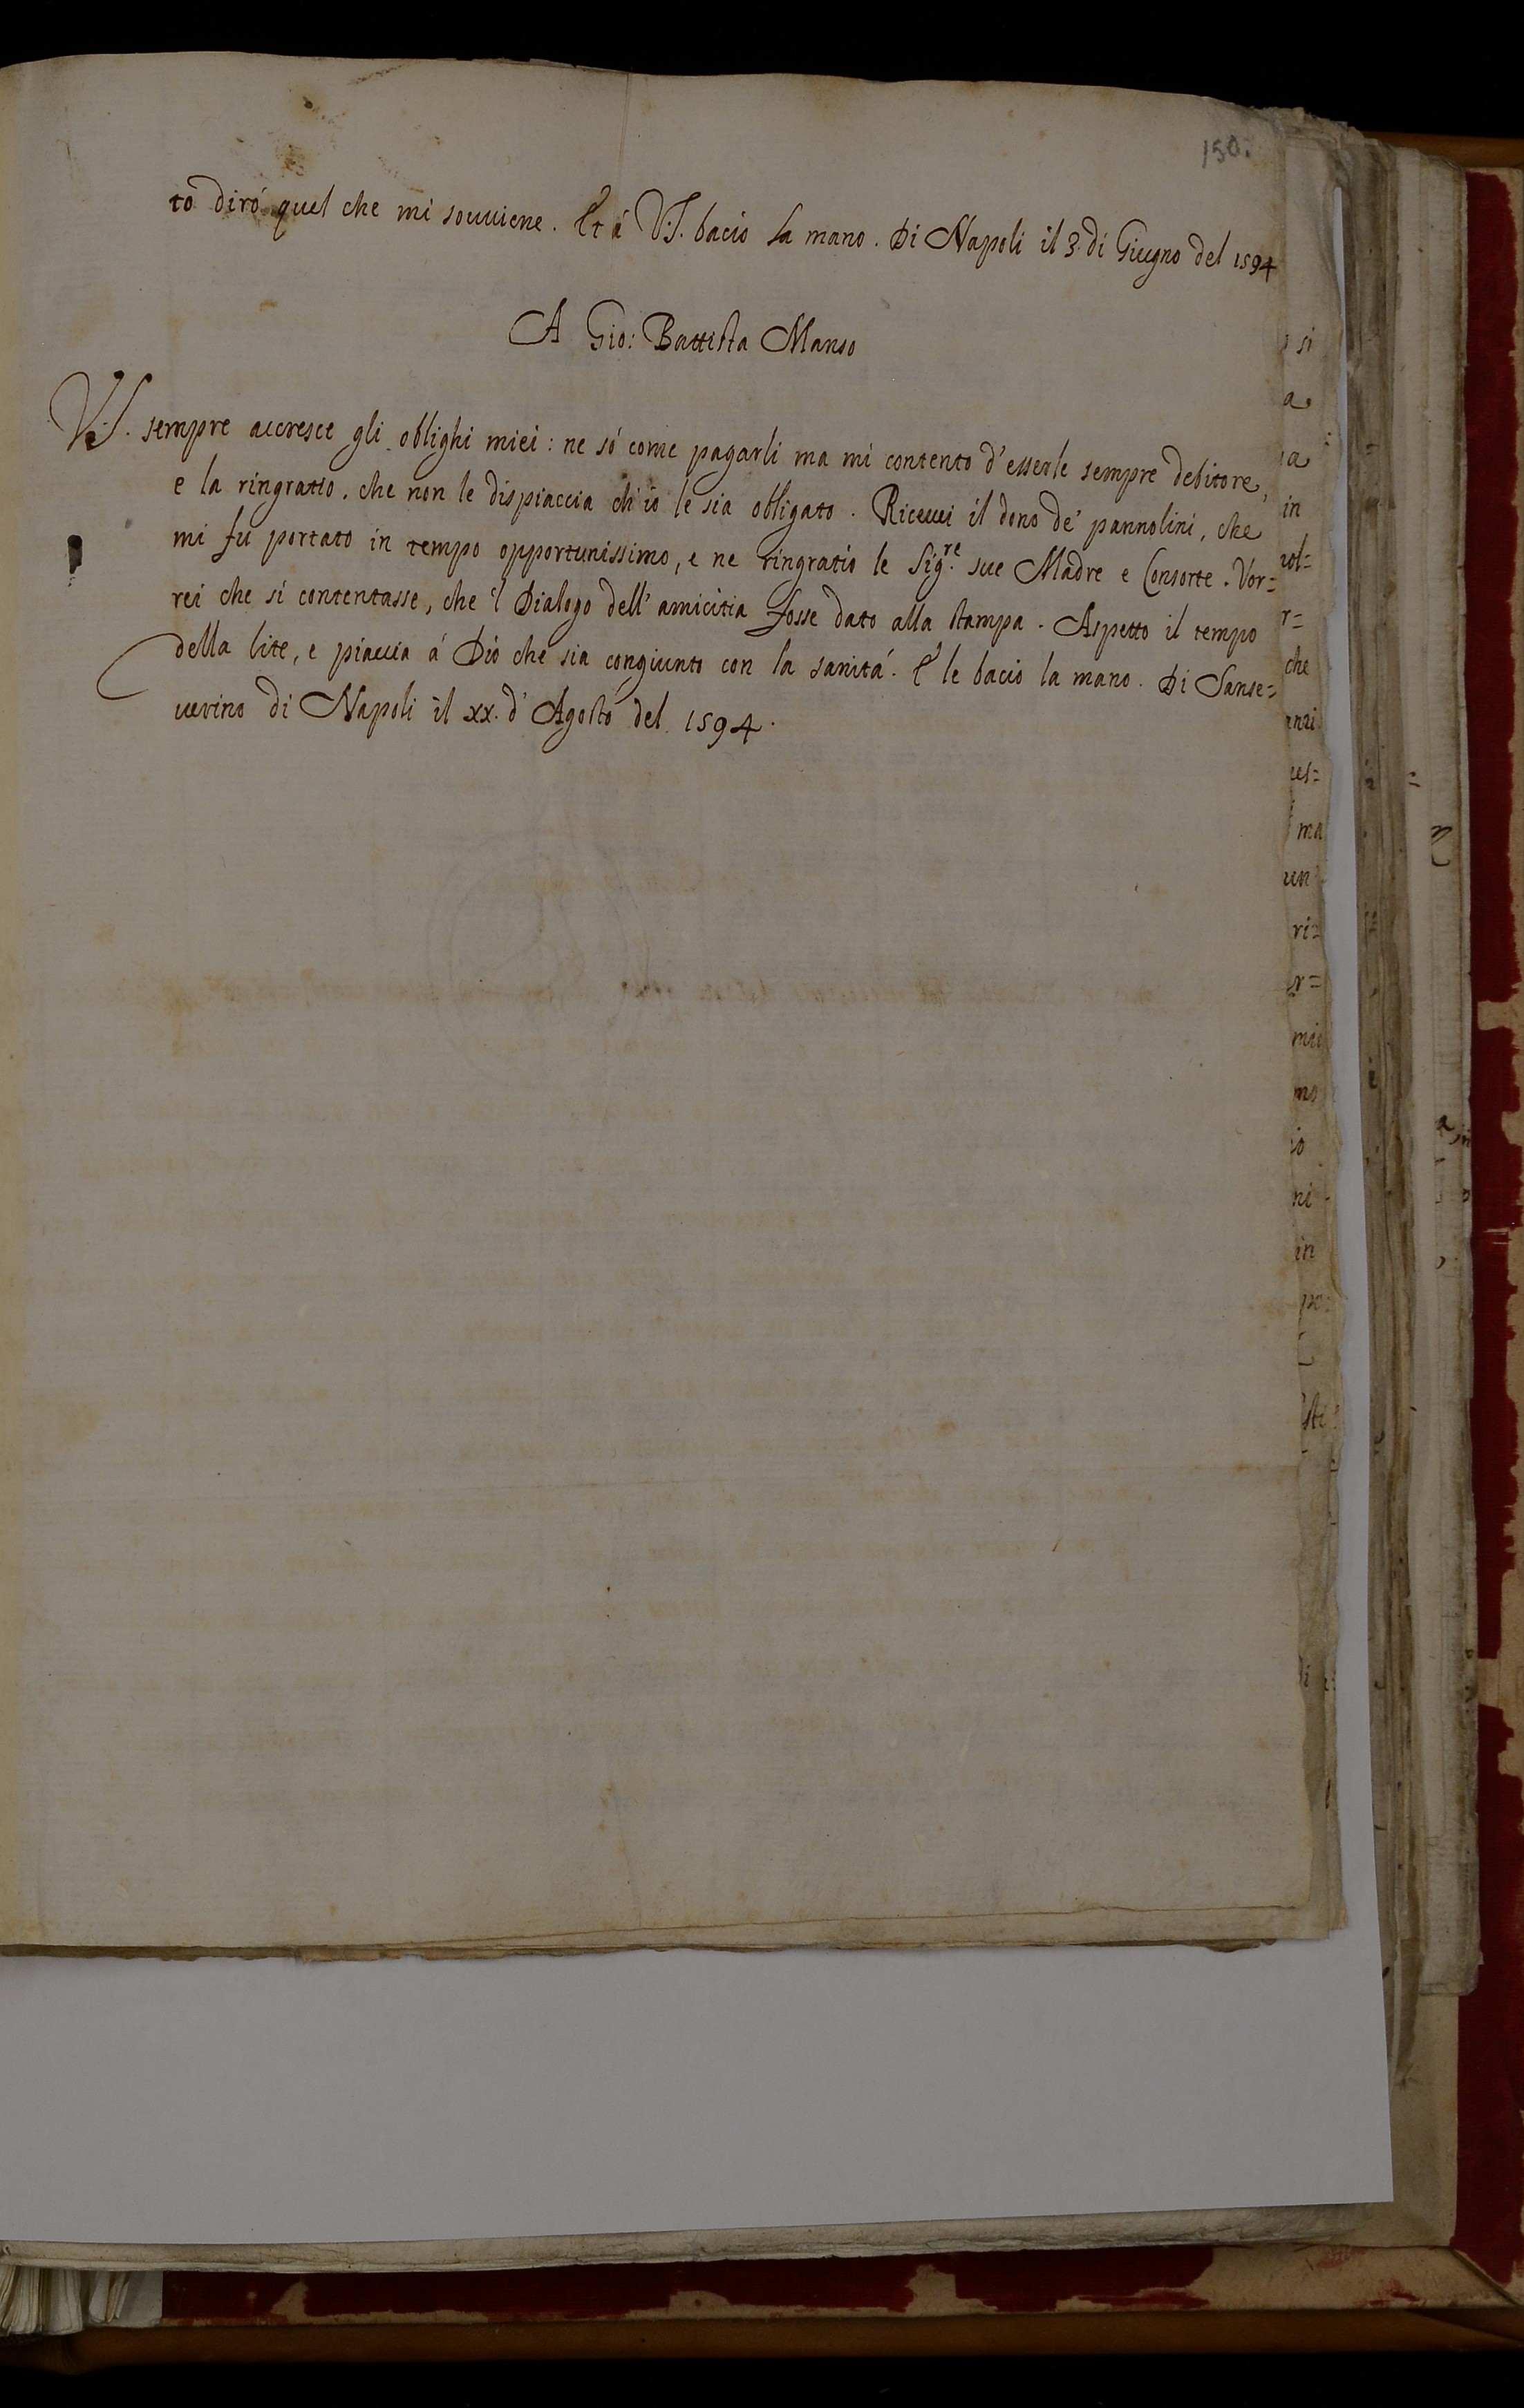 150.
to diró quel che mi souuiene. Et á V.S. bacio la mano. Di Napoli il 3. di Giugno del 1594
A Gio: Battista Manso
V.S. sempre accresce gli oblighi miei: ne só come pagarli ma mi contento d'esserle sempre debitore,
e la ringratio, che non le dispiaccia ch'io le sia obligato. Riceuei il dono de' pannolini, che
mi fu portato in tempo opportunissimo, e ne ringratio le Sig.re sue Madre e Consorte. Vor=
rei che si contentasse, che 'l Dialogo dell'amicitia fosse dato alla stampa. Aspetto il tempo
della lite, e piaccia á Dio che sia congiunto con la sanitá. E le bacio la mano. Di Sanse=
uerino di Napoli il xx. d'Agosto del 1594.
si
a
a
in
uol=
r=
che
anzi
ues=
ma
un
ri=
er=
mii
mo
io
ni
in